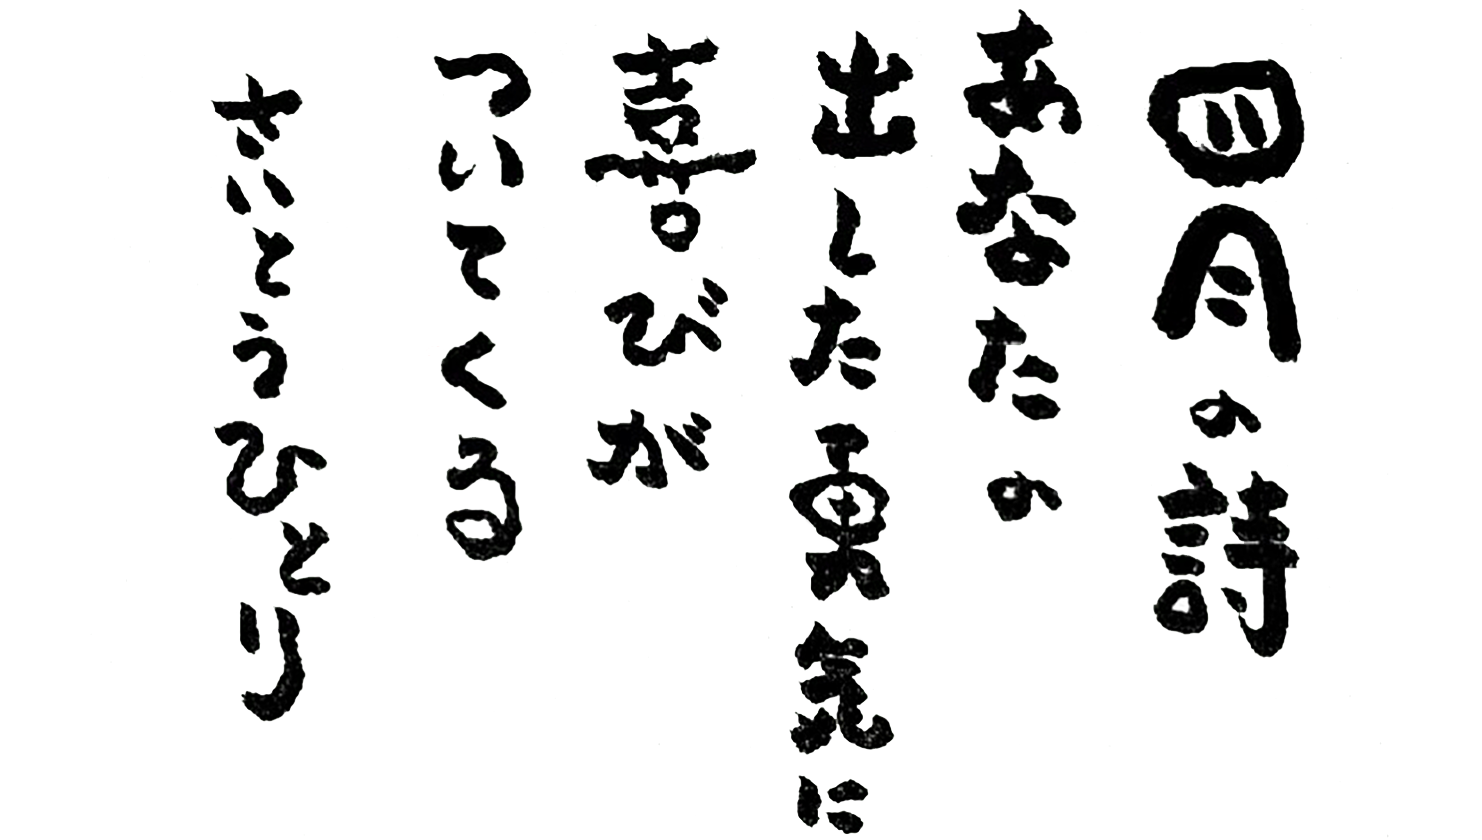 四月の詩
あなたの
出した勇気に
喜びが
ついてくる
さいとうひとり